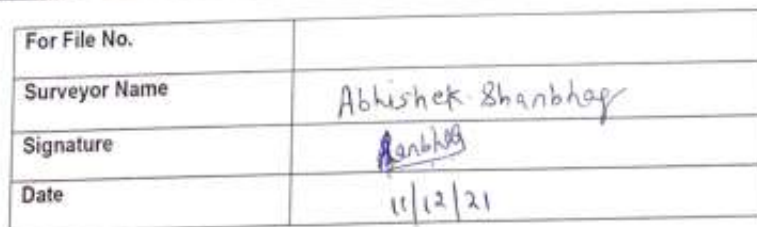 For File No.
Surveyor Name Abhishek Shanbhag
Signature
Date 11/12/21